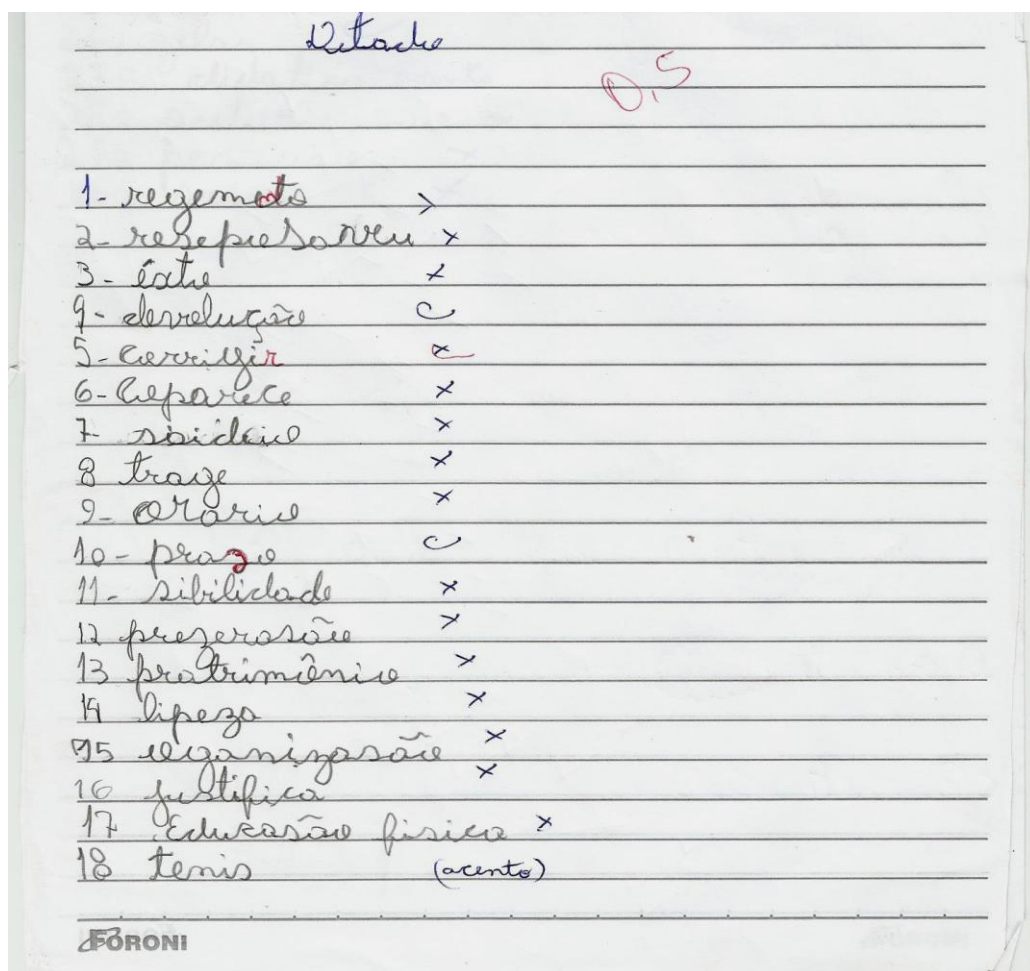 Ditado
0,5
1- regemento
2- resepreso
3- éxito
4- devolução
5- corrigir x
6- Coparece x
7- sosideio x
8 trage x
9- Orário x
10- prazo
11- sibilidade x
12 prezerasão x
13 pratrimônio x
14 lipeza x
15 organizasão x
16 justifica x
17 Educasão fisica x
18 tenis (acento)
FORONI